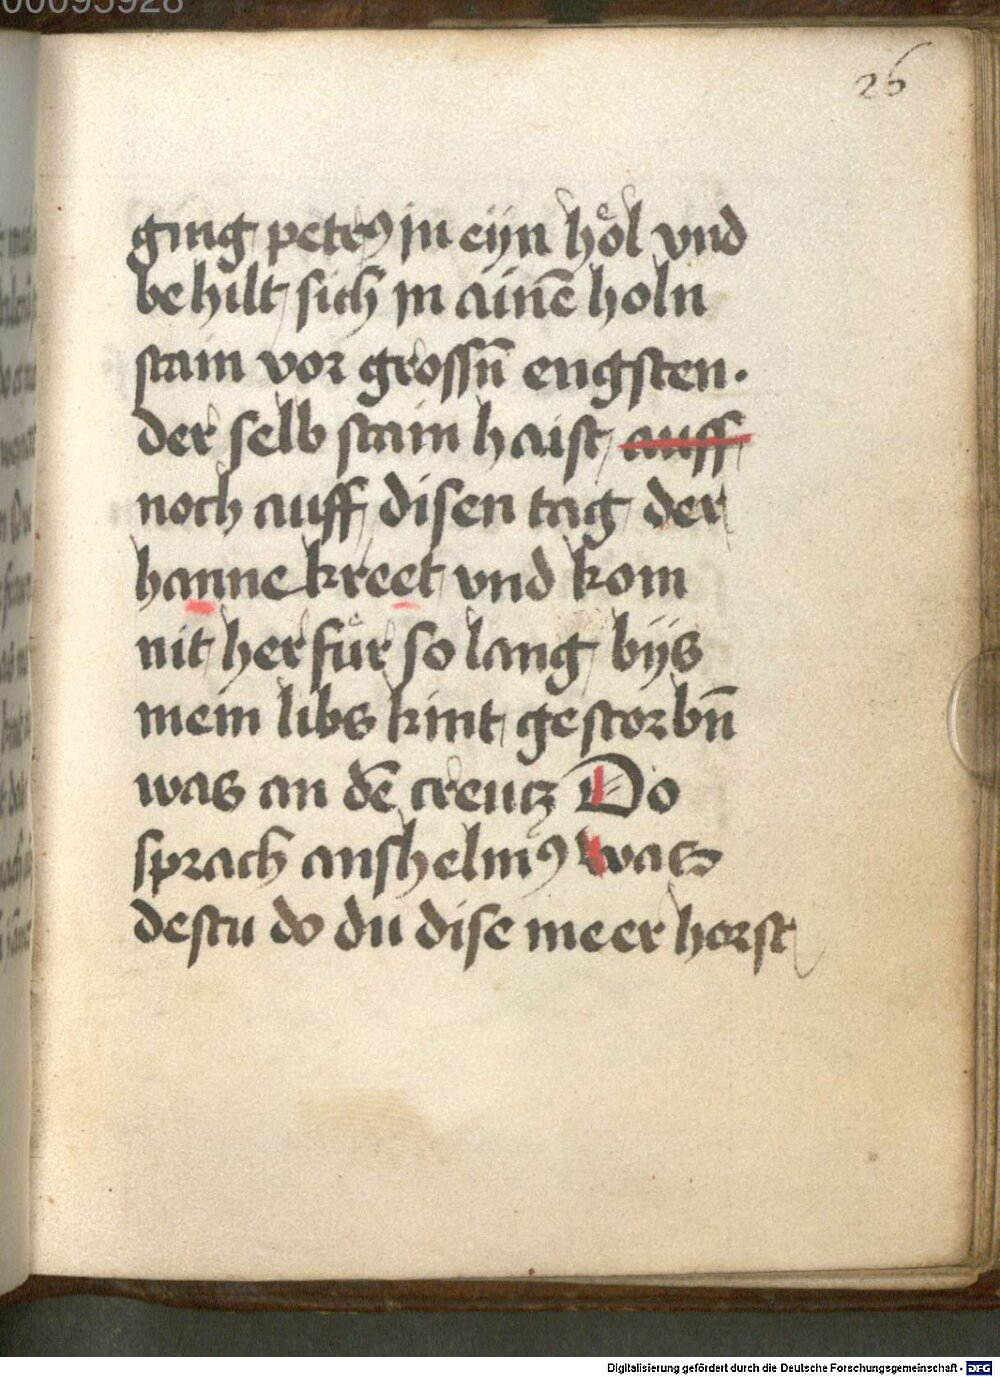 00095928
26
ging petrꝰ in eyn hoͤl vnd
behilt sich in aineͫ holn
stain vor grossn̄ engsten·
der selb stain haist auff
noch auff disen tag der
hannekreet vnd kom
nit her fuͤr so lang bijs
mein libs kint gestorbn̄
was an dē creutz Do
sprach anshelmꝰ Was
destu do du dise meer horst
Digitalisierung gefördert durch die Deutsche Forschungsgemeinschaft - DFG